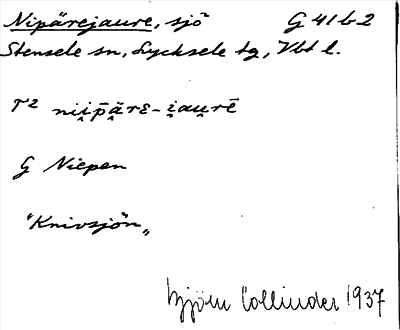 Nipärejaure, sjö G 41 b 2
Stensele sn, Lycksele tg, Vbt l.
T² nii̯pä̆rɛ-i̯au̯rē
G Niepen
"Knivsjön„
Björn Collinder 1937